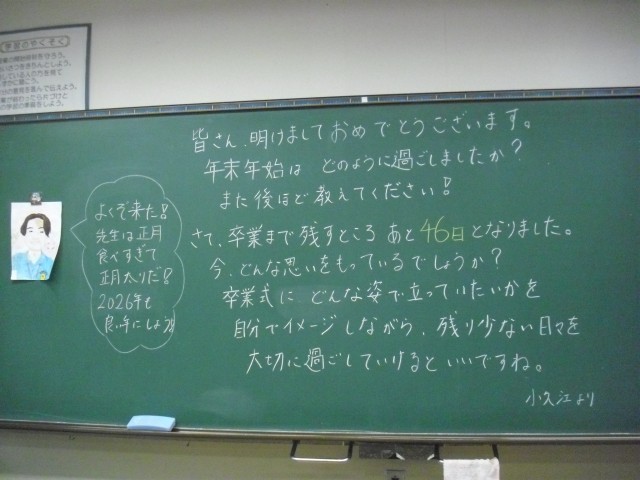 学習のやくそく
皆さん、明けましておめでとうございます。
年末年始は どのように過ごしましたか？
また後ほど教えてください！
さて、卒業まで残すところ あと46日となりました。
今、どんな思いをもっているでしょうか？
卒業式に どんな姿で立っていたいかを
自分でイメージしながら、残り少ない日々を
大切に過ごしていけるといいですね。
小久江より
よくぞ来た！
先生は正月
食べすぎて
正月太りだ！
2026年も
良い年にしよう！